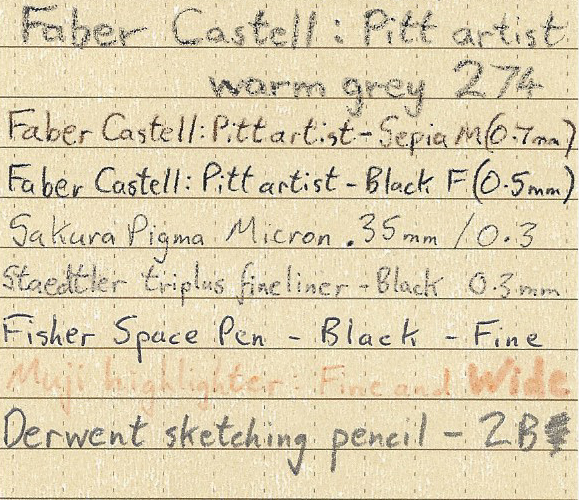 Faber Castell: Pitt artist
warm grey 274
Faber Castell: Pitt artist - Sepia M (0.7mm)
Faber Castell: Pitt artist - Black F (0.5mm)
Sakura Pigma Micron .35mm / 0.3
Staedtler triplus fineliner - Black 0.3mm
Fisher Space Pen - Black - Fine
Muji highlighter: Fine and Wide
Derwent sketching pencil - 2B